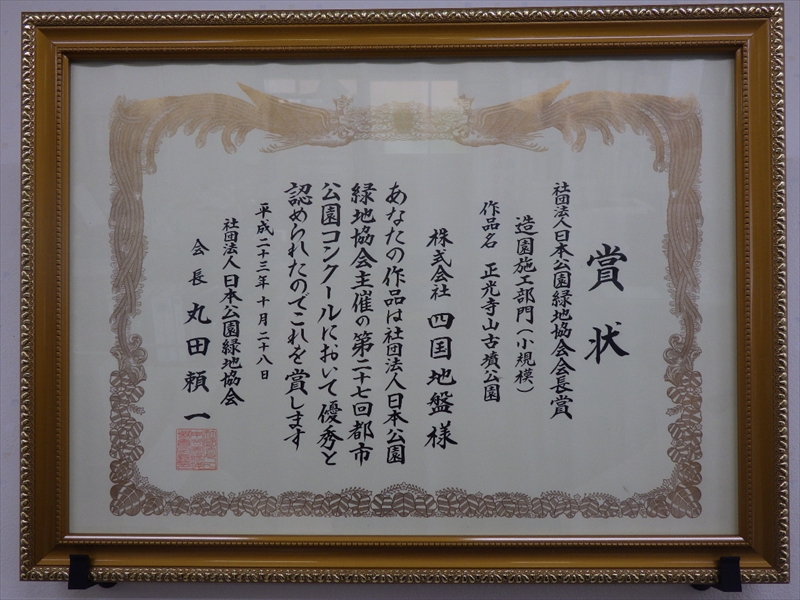 賞状
社団法人日本公園緑地協会会長賞
造園施工部門(小規模)
作品名 正光寺山古墳公園
株式会社 四国地盤様
あなたの作品は社団法人日本公園
緑地協会主催の第二十七回都市
公園コンクールにおいて優秀と
認められたのでこれを賞します
平成二十三年十月二十八日
社団法人日本公園緑地協会
会長 丸田頼一